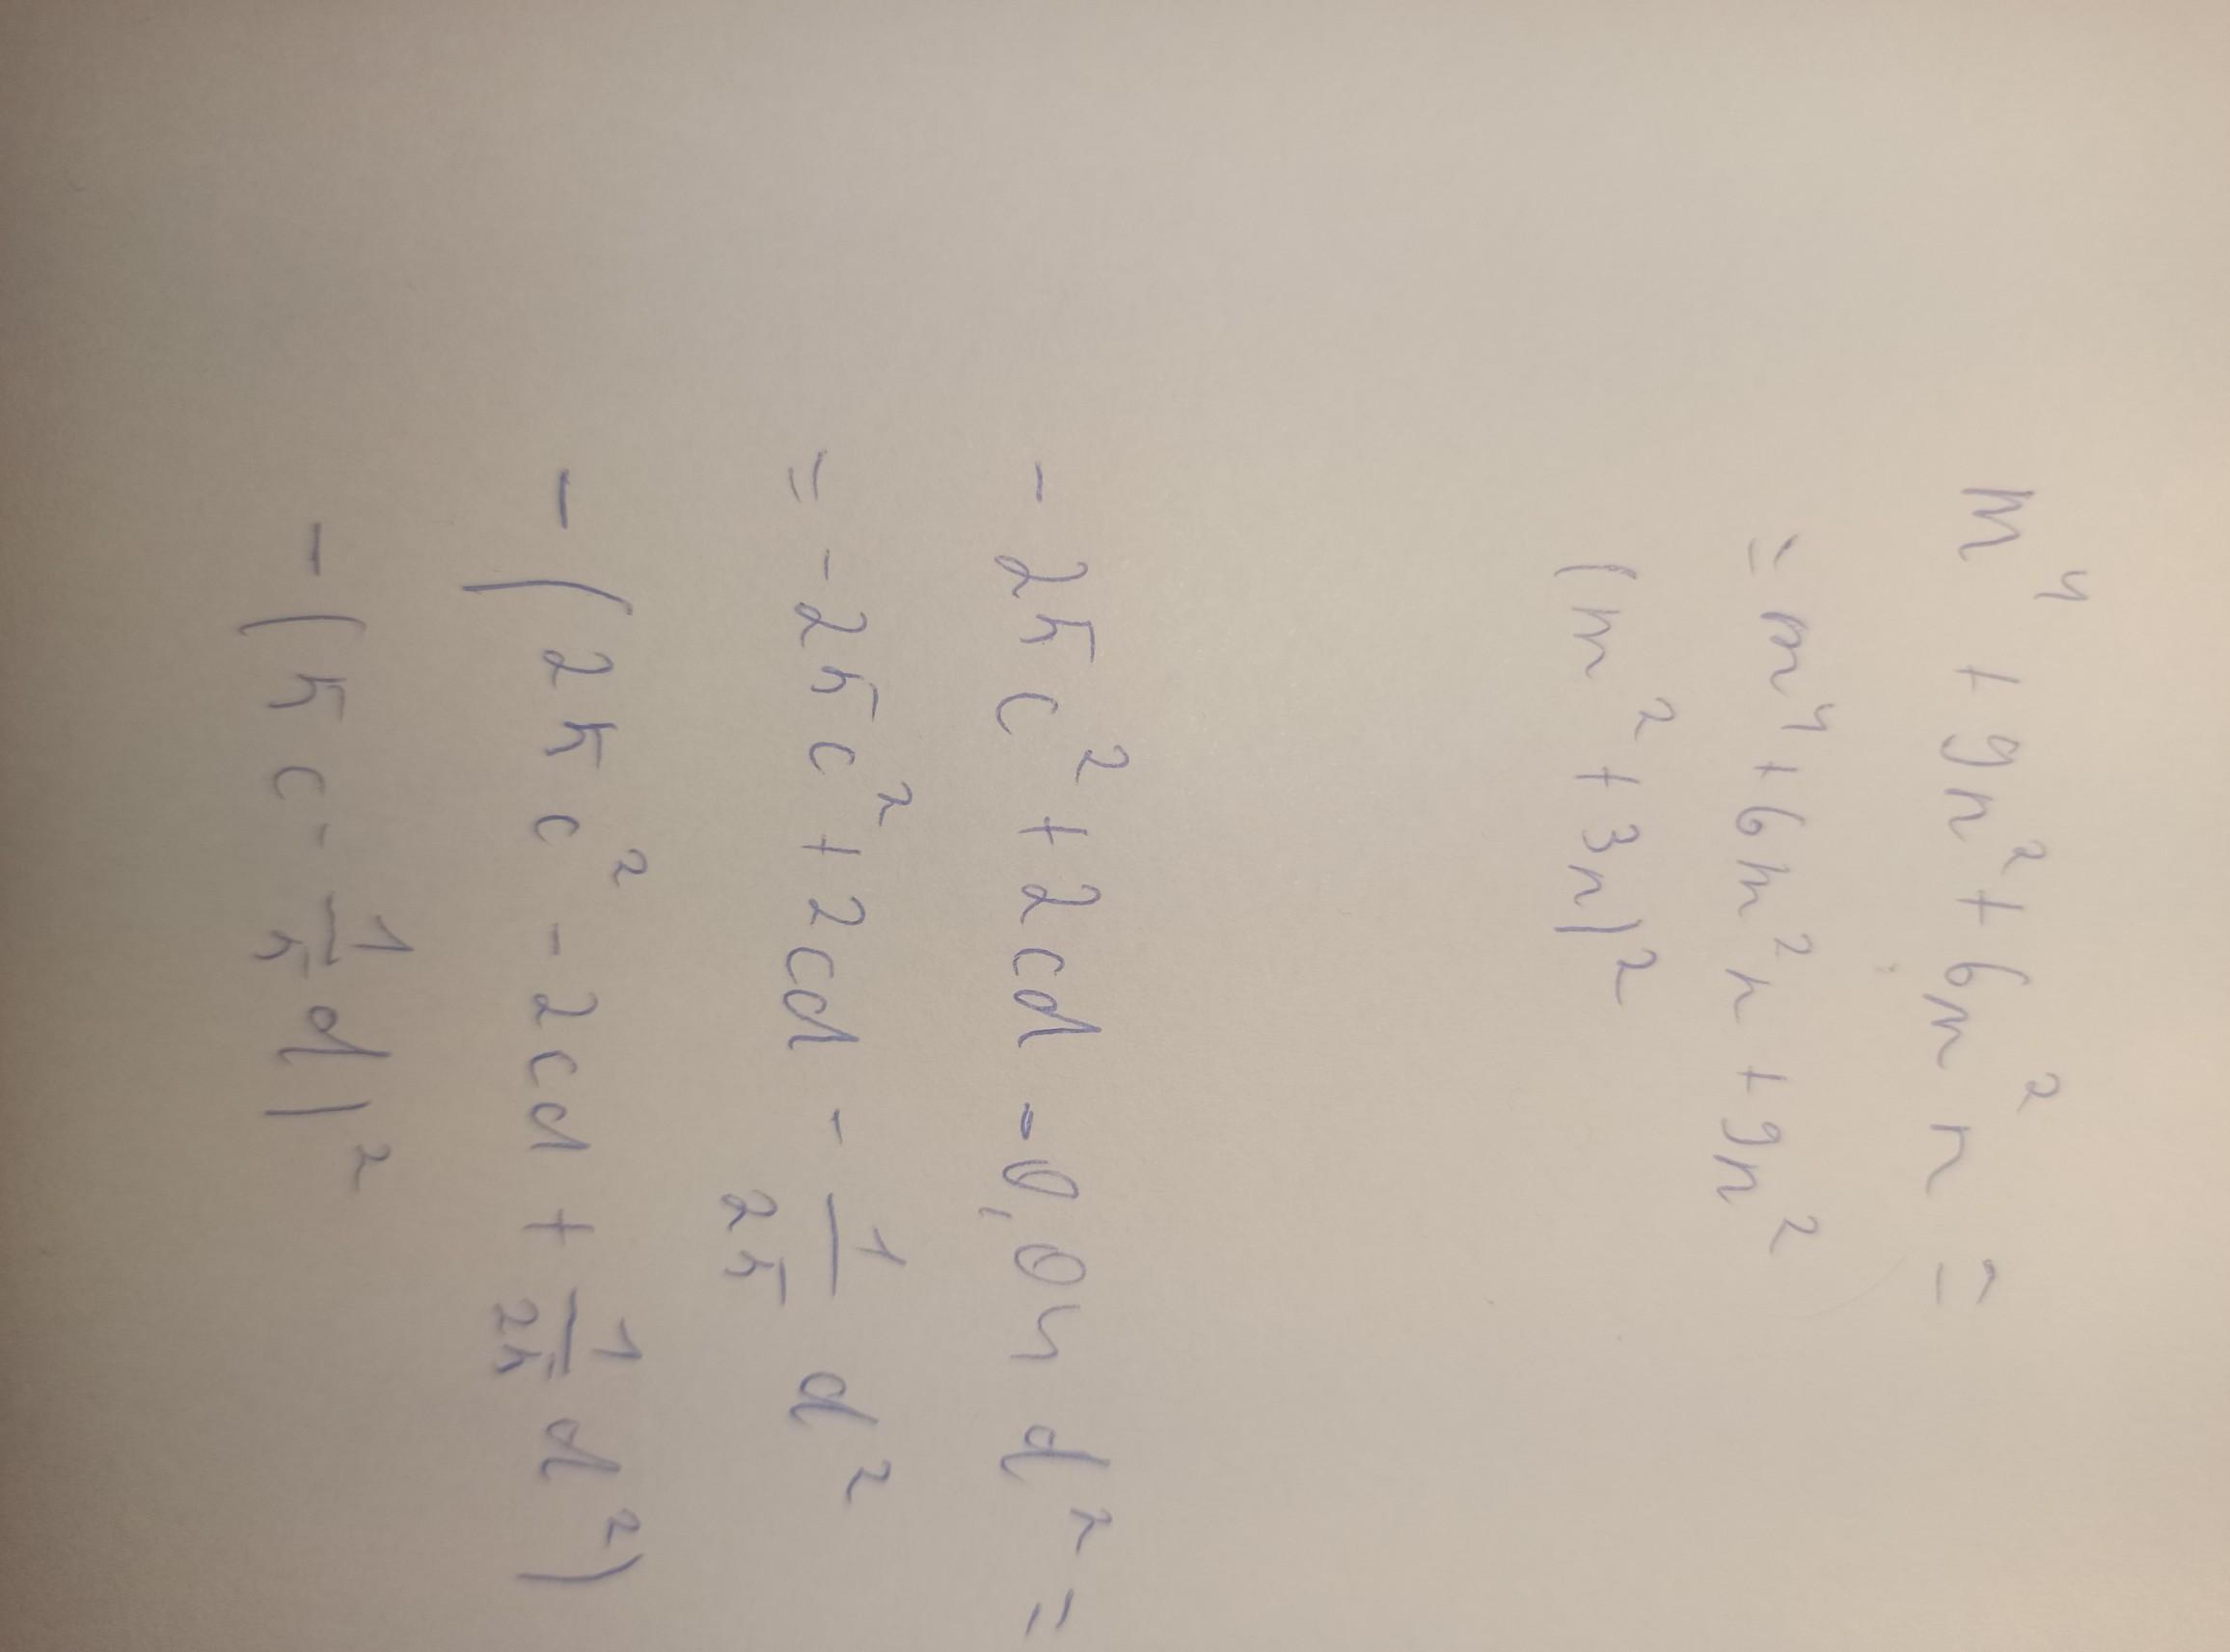 m⁴ + 9n² + 6m²n =
= m⁴ + 6m²n + 9n²
(m² + 3n)²
- 25c² + 2cd - 0,04d² =
= -25c² + 2cd - 1/25 d²
- (25c² - 2cd + 1/25 d²)
- (5c - 1/5 d)²